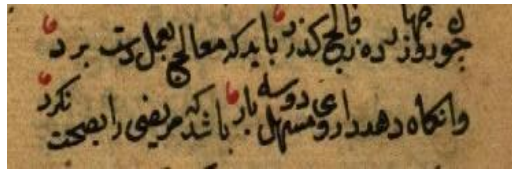 چو روز چهارده ز فالج گذرد باید که معالج بعمل دست برد
وانگاه دهد داروی مسهل دو سه بار باشد که مریض را بصحت نگرد